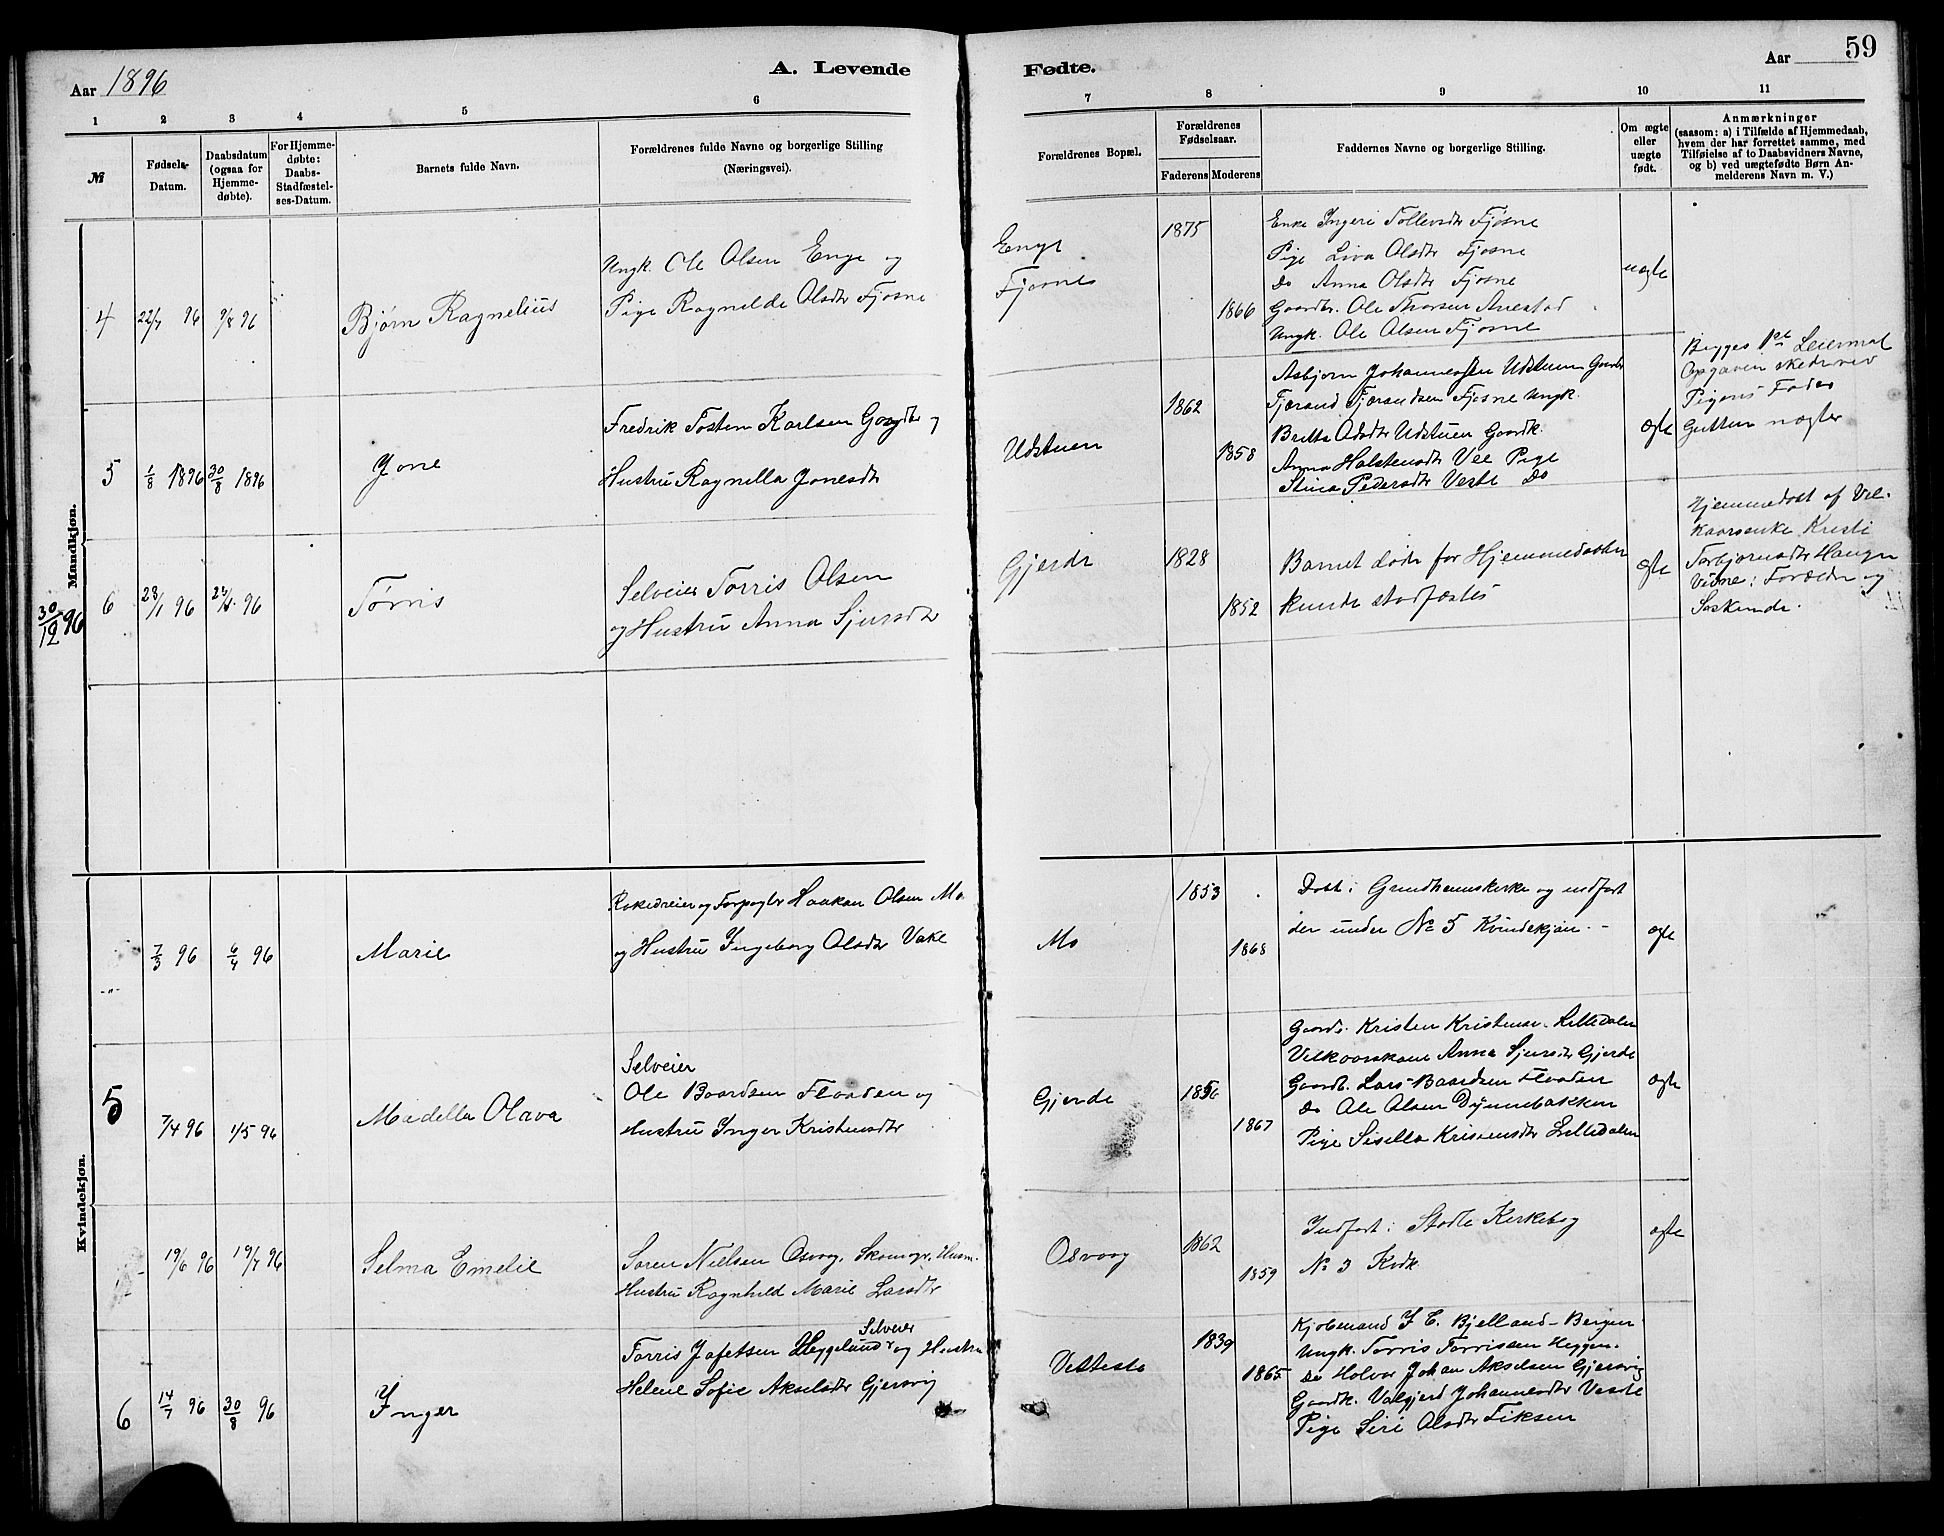 59
A. Levende Fødte.
Aar 1896
Aar
1 2 3 4 5 6 7 8 9 10 11
№
Fødsels-Datum.
Daabsdatum (ogsaa for Hjemmedøbte).
For Hjemmedøbte: Daabs-Stadfæstelses-Datum.
Barnets fulde Navn.
Forældrenes fulde Navne og borgerlige Stilling
(Næringsvei).
Forældrenes Bopæl.
Forældrenes Fødselsaar.
Faderens Moderens
Faddernes Navne og borgerlige Stilling.
Om ægte eller uægte født.
Anmærkninger
(saasom: a) i Tilfælde af Hjemmedaab,
hvem der har forrettet samme, med
Tilføielse af to Daabsvidners Navne,
og b) ved uægtefødte Børn Anmelderens Navn m. V.)
Mandkjøn.
4 22/7 96 9/8 96 Bjørn Ragnelius
Ungk. Ole Olsen Enge og
Pige Ragnelde Olsdtr Fjosne
Enge
Fjosne
1875
1866
Enke Ingeri Tollevsdtr Fjosne
Pige Liva Olsdtr Fjosne
Do Anna Olsdtr Fjosne
Gaardbr. Ole Thorsen Anestad
Ungk. Ole Olsen Fjosne
uægte
Begges 1ste Leiermal
Opgaven skede ved
Pigens Fader
Gutten nægter
5 1/8 1896 30/8 1896 Jone
Fredrik Tosten Karlsen Gaardbr og
Hustru Ragnella Jonesdtr
Udstuen
1862
1858
Asbjorn Johannessen Udstuen Gaardbr
Fjærand Fjærandsen Fjosne Ungk.
Britta Olsdtr Udstuen Gaardk.
Anna Halstensdtr Vee Pige
Stina Pedersdtr Veste Do
ægte
30/12 96
6 23/1 96 96 Tørris
Selveier Torris Olsen
og Hustru Anna Sjursdtr
Gjerde
1828
1852
Barnet døde før Hjemmedaaben
kunde stadfæstes
ægte
Hjemmedøbt af Vil-
kaarsenke Kristi
Torbjørnsdtr Haugen
Vidne: Forældre og
Søskende.
Kvindekjøn.
-"- 7/3 96 6/4 96 Marie
og Forpagter Haakon Olsen Mo
og Hustru Ingeborg Olsdtr Vake
Mo
1853
1868
Døbt i Grindheimskirke og indført
der under № 5 Kvindekjøn. -
ægte
5 7/4 96 1/5 96 Madella Olava
Selveier
Ole Baardsen Flaaden og
Hustru Inger Kristensdtr
Gjerde
1856
1867
Gaardb. Kristen Kristensen Litledalen
Vilkaarskone Anna Sjursdtr Gjerde
Gaardb. Lars Baardsen Flaaden
Do Ole Olsen Dynnebakken
Pige Sisella Kristensdtr Litledalen
ægte
19/6 96 19/7 96 Selma Emelie
Søren Nielsen Osvag, Skomager, Husm.
Hustru Ragnhild Marie Larsdtr
Osvaag
1862
1859
Indført i Stødle Kirkebog
№ 3 Kvdk
ægte
6 14/7 96 30/8 96 Inger
Selveier
Torris Jafetsen Heggelund og Hustru
Helene Sofie Akselsdtr Gjersvig
Vesteste
1839
1865
Kjøbmand J. C. Bjelland - Bergen
Ungk. Torris Torrissen Heggen.
Do Holvor Johan Akselsen Gjersvig
Gaardk. Valgjerd Johannesdtr Veste
Pige Siri Olsdtr Tiksen